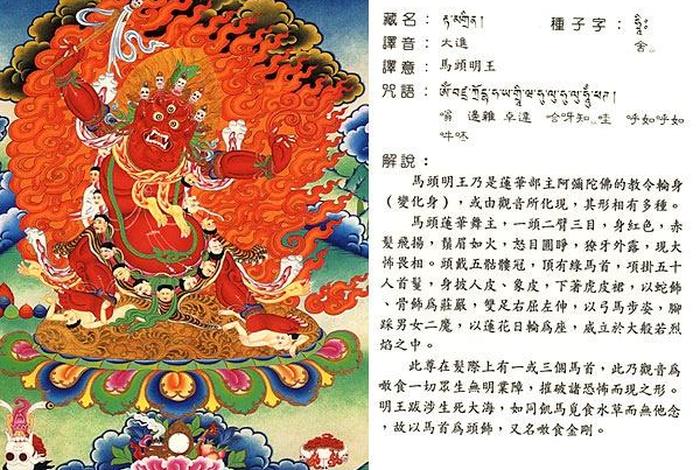 藏名：རྟ་མགྲིན། 種子字：ཧྲཱིཿ
舍
譯音：大進
譯意：馬頭明王
咒語：ༀ་བཛྲ་ཀྲོ་དྷ་ཧ་ཡ་གྲཱི་ཝ་ཧུ་ལུ་ཧུ་ལུ་ཧཱུྃ་ཕཊ།
嗡 邊雜 卓達 哈呀知 哇 呼如呼如
吽呸
解說：
馬頭明王乃是蓮華部主阿彌陀佛的教令輪身
（變化身），或由觀音所化現，其形相有多種。
馬頭蓮華舞主，一頭二臂三目，身紅色，赤
髮飛揚，鬚眉如火，怒目圓睜，獠牙外露，現大
怖畏相。頭戴五骷髏冠，頂有綠馬首，項掛五十
人首鬘，身披人皮、象皮，下著虎皮裙，以蛇飾
、骨飾爲莊嚴，雙足右屈左伸，以弓馬步姿，腳
踩男女二魔，以蓮花日輪爲座，威立於大般若烈
焰之中。
此尊在髮際上有一或三個馬首，此乃觀音爲
噉食一切眾生無明業障，摧破諸恐怖而現之形。
明王跋涉生死大海，如同飢馬覓食水草而無他念
，故以馬首爲頭飾，又名噉食金剛。